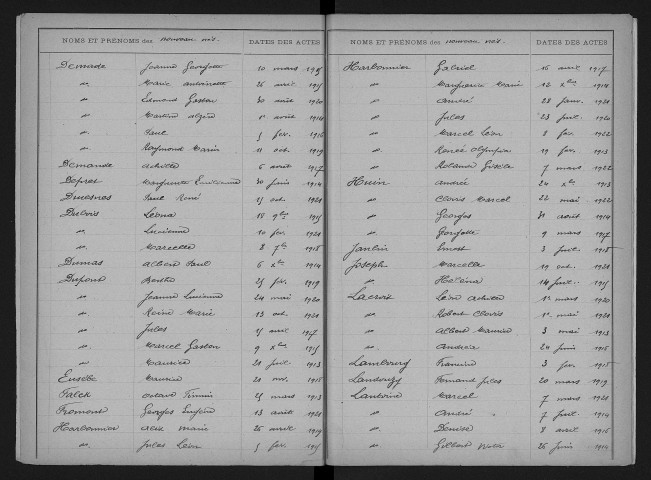 NOMS ET PRÉNOMS des nouveau nés. DATES DES ACTES
Demarde Jeanne Georgette 10 mars 1915
" Marie Antoinette 26 avril 1915
" Edmond Gaston 30 août 1920
" 1er avril 1914
" Paul 5 fév. 1912
" Raymond Marin 11 oct. 1919
Demande Achille 6 avril 1917
Depret Marguerite Emilienne 30 juin 1914
Ducesnes Paul René 15 oct. 1921
Dubois Léona 18 9bre 1915
" Lucienne 10 fév. 1921
" Marcelle 8 7bre 1915
Dumas Albert Paul 6 Xbre 1914
Dupont Berthe 25 fév. 1919
" Jeanne Lucienne 24 mai 1920
" Reine Marie 13 oct. 1921
" Jules 15 avril 1917
" Marcel Gaston 9 Xbre 1915
" Maurice 21 juil. 1913
Eusèbe Maurice 21 nov. 1915
Falck 25 mars 1913
Fromont Georges Eugène 13 août 1921
Harbonnier Alix Marie 26 avril 1919
" Jules Léon 5 fév. 1915
NOMS ET PRÉNOMS des nouveau nés. DATES DES ACTES
Harbonnier Gabriel 16 avril 1917
" Marguerite Marie 12 Xbre 1914
" André 28 janv. 1920
" Jules 23 juil. 1920
" Marcel Léon 8 fév. 1922
" Renée Olympia 19 fév. 1913
" Roland Gisèle 7 mars 1922
Huin Andrée 24 Xbre 1913
" Clovis Marcel 22 mai 1922
" Georges 31 août 1914
" Georgette 9 mars 1917
Janlin Ernest 3 juil. 1915
Joseph Marcelle 19 oct. 1921
" Héléna 14 juil. 1915
Lacroix Léon Achille 1er mars 1920
" Robert Clovis 1er mai 1924
" Albert Maurice 3 mai 1913
" Andréa 24 juin 1915
Lambourg Francine 3 fév. 1915
Landouzy Fernand Jules 20 mars 1919
Lantoine Marcel 7 mars 1921
" André 7 juil. 1914
" Denise 8 avril 1916
" Gilbert 26 juin 1914